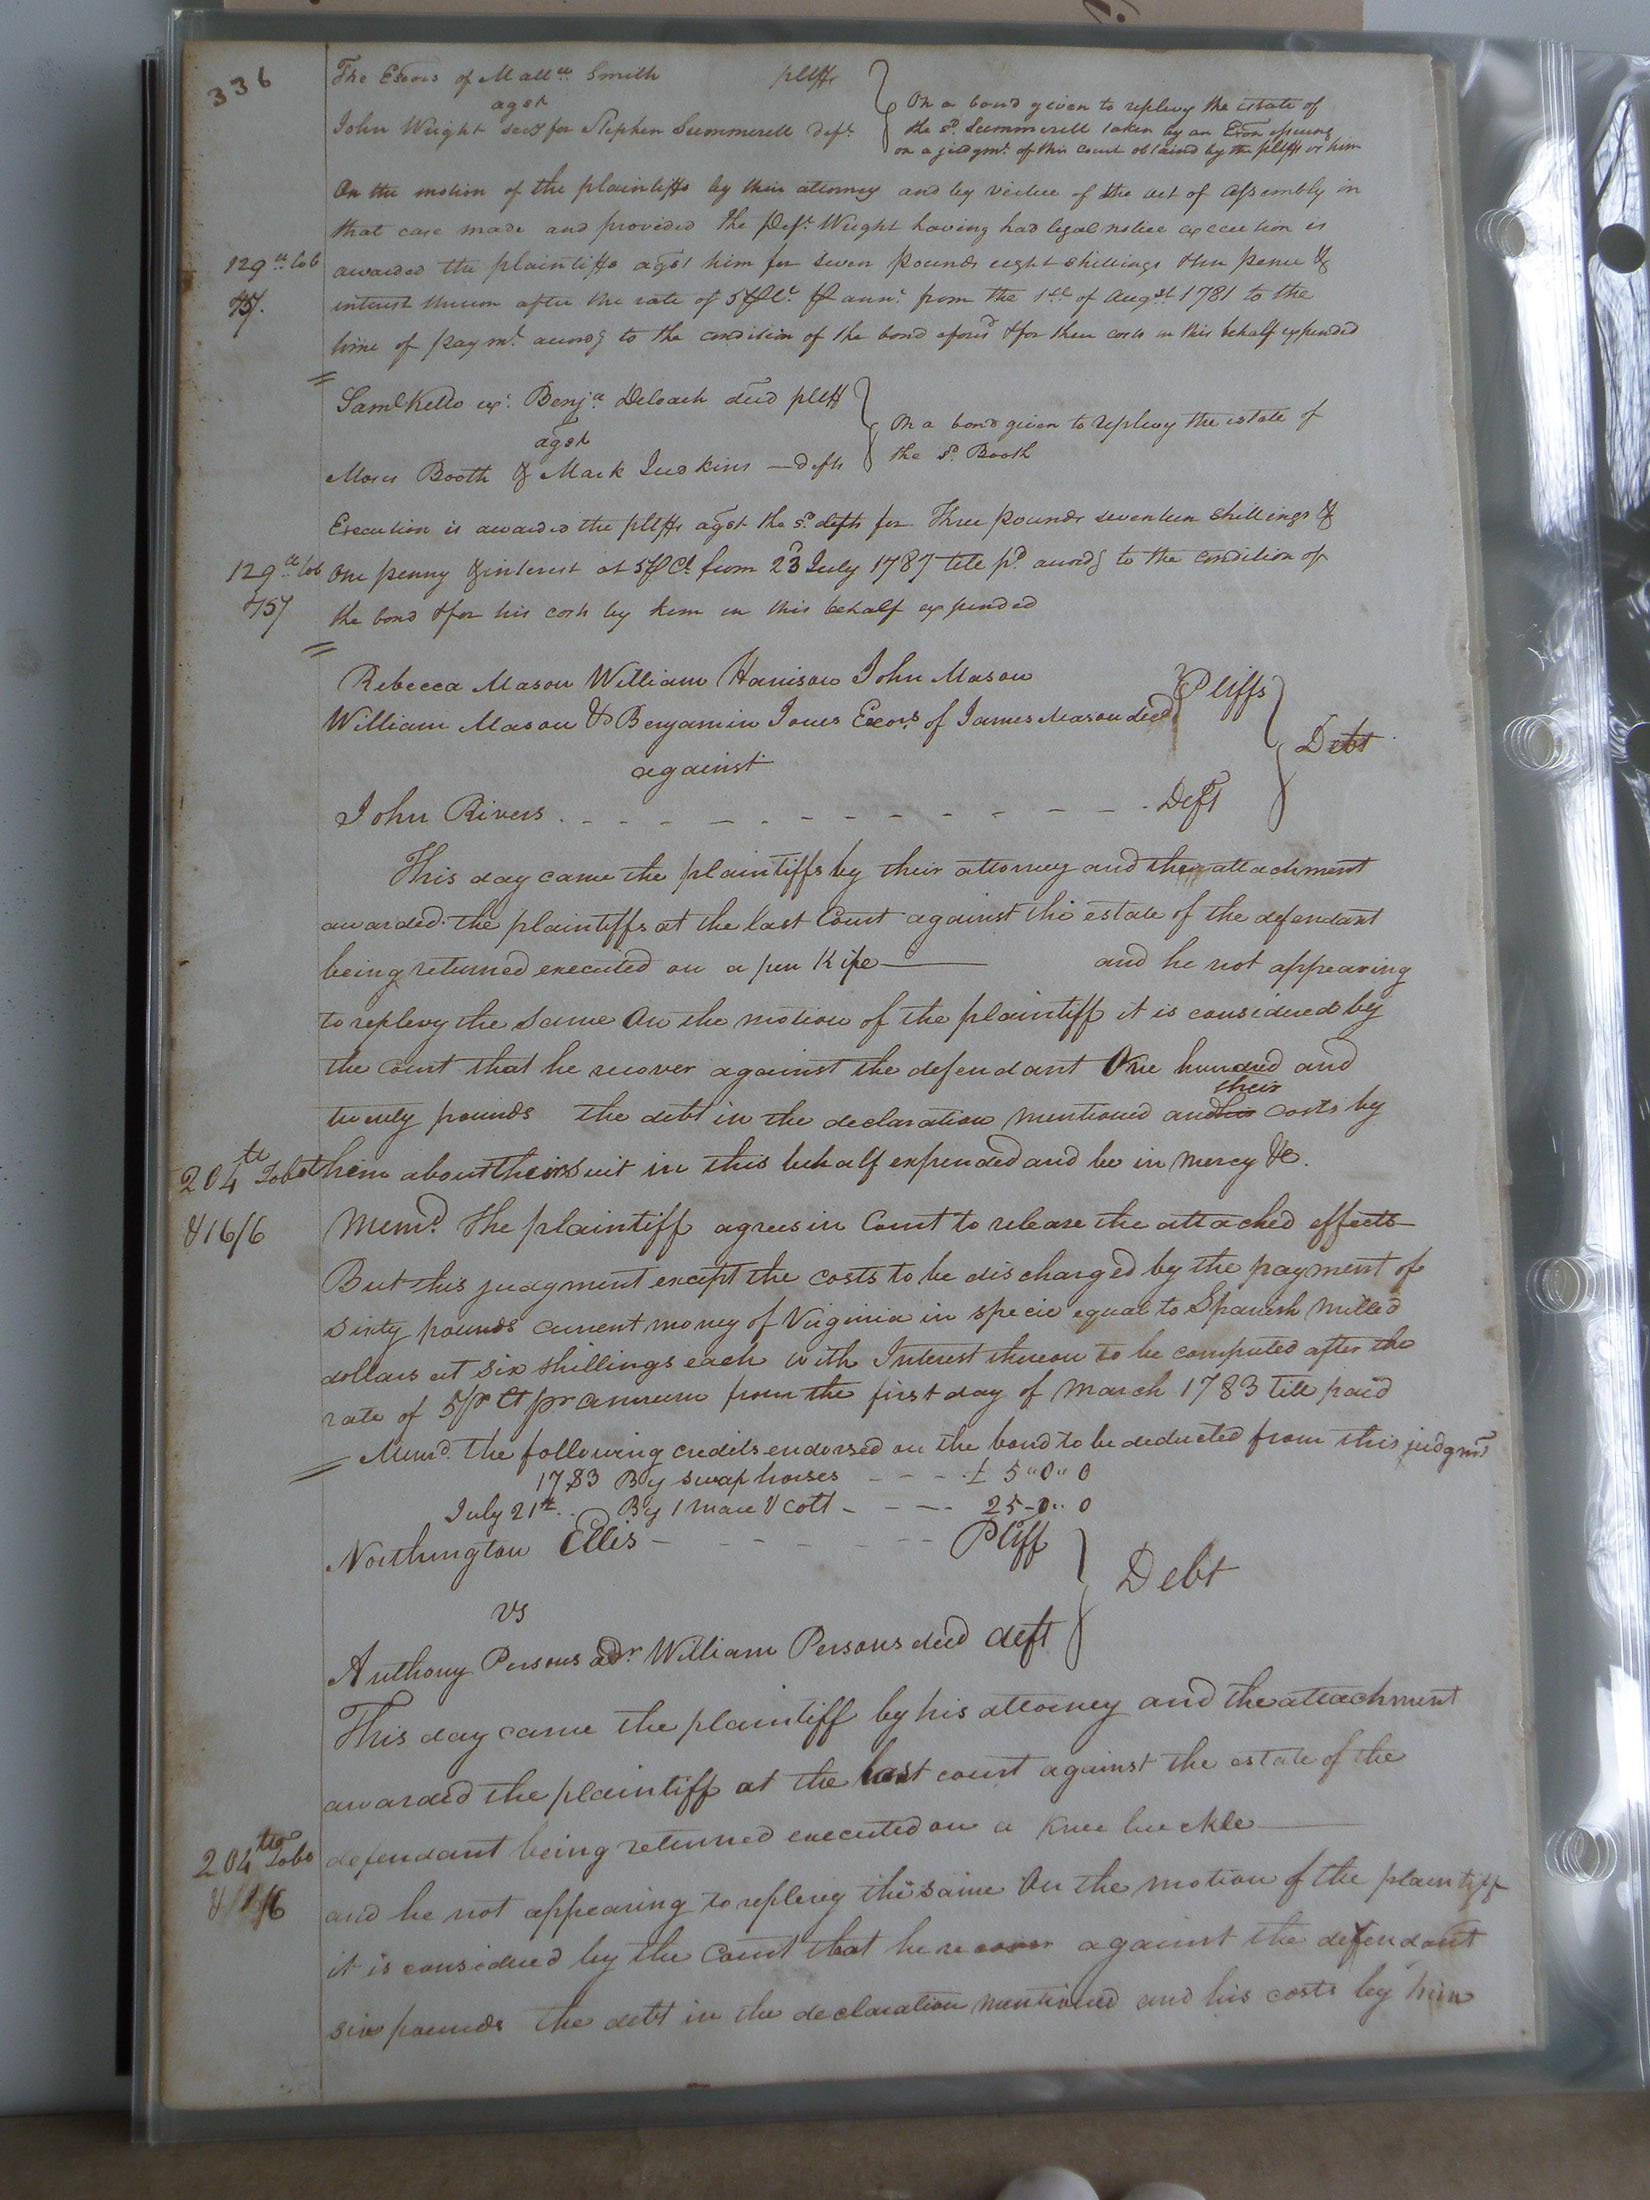 336
The Exors of Matt.ee Smith pltffs
agst
John Wright secy for Stephen Summerell deft.
On a bond given to replevy the estate of
the sd. Summerell taken by an Exon issuing
on a judgmt. of this court obtained by the pltffs vs him
On the motion of the plaintiffs by their attorney and by virtue of the act of assembly in
that case made and provided the Deft. Wright having had legal notice execution is
awarded the plaintiffs agst him for seven pounds eight shillings & pence &
interest thereon after the rate of 5 P Ct. P ann. from the 1st of Augst 1781 to the
time of paymt. accordg to the condition of the bond aforesd & for their costs in this behalf expended
129 tt tob
75/.
Saml Kello exr. Benja. Deloach decd pltff
agst
Moses Booth & Mark Judkins — defts
On a bond given to replevy the estate of
the sd. Booth
Execution is awarded the pltffs agst the sd. defts for Three pounds seventeen shillings &
One penny & interest at 5 P Ct from 23d July 1787 till pd. accordg to the condition of
the bond & for his costs by him in this behalf expended
129 tt tob
&757
Rebecca Mason William Harrison John Mason
William Mason & Benjamin Jones Exors. of James Mason decd
Pltffs
against
Debt
John Rivers . - - - - - - - - - - - - Deft
This day came the plaintiffs by their attorney and the attachment
awarded the plaintiffs at the last Court against the estate of the defendant
being returned executed on a pen Kife — and he not appearing
to replevy the same On the motion of the plaintiff it is considered by
the Court that he recover against the defendant One hundred and
their
twenty pounds the debt in the declaration mentioned and his costs by
them about their suit in this behalf expended and be in mercy &c.
204 tt Tobo
&16/6
Memd. The plaintiff agrees in Court to release the attached effects
But this judgment except the costs to be discharged by the payment of
Sixty pounds current money of Virginia in specie equal to Spanish milled
dollars at six shillings each with Interest thereon to be computed after the
rate of 5 pr Ct pr annum from the first day of March 1783 till paid
Memd. The following credits endorsed on the bond to be deducted from this judgmt
1783 By swap horses - - - - £ 5"0"0
July 21st. . By 1 mare & colt - - - - 25-0"0
Northington Ellis - - - - - - - Pltff
vs
Debt
Anthony Persons adr. William Persons decd deft
This day came the plaintiff by his attorney and the attachment
awarded the plaintiff at the last court against the estate of the
defendant being returned executed on a knee buckle
and he not appearing to replevy the same On the motion of the plaintiff
it is considered by the Court that he recover against the defendant
six pounds the debt in the declaration mentioned and his costs by him
204 tt Tobo
&16/6